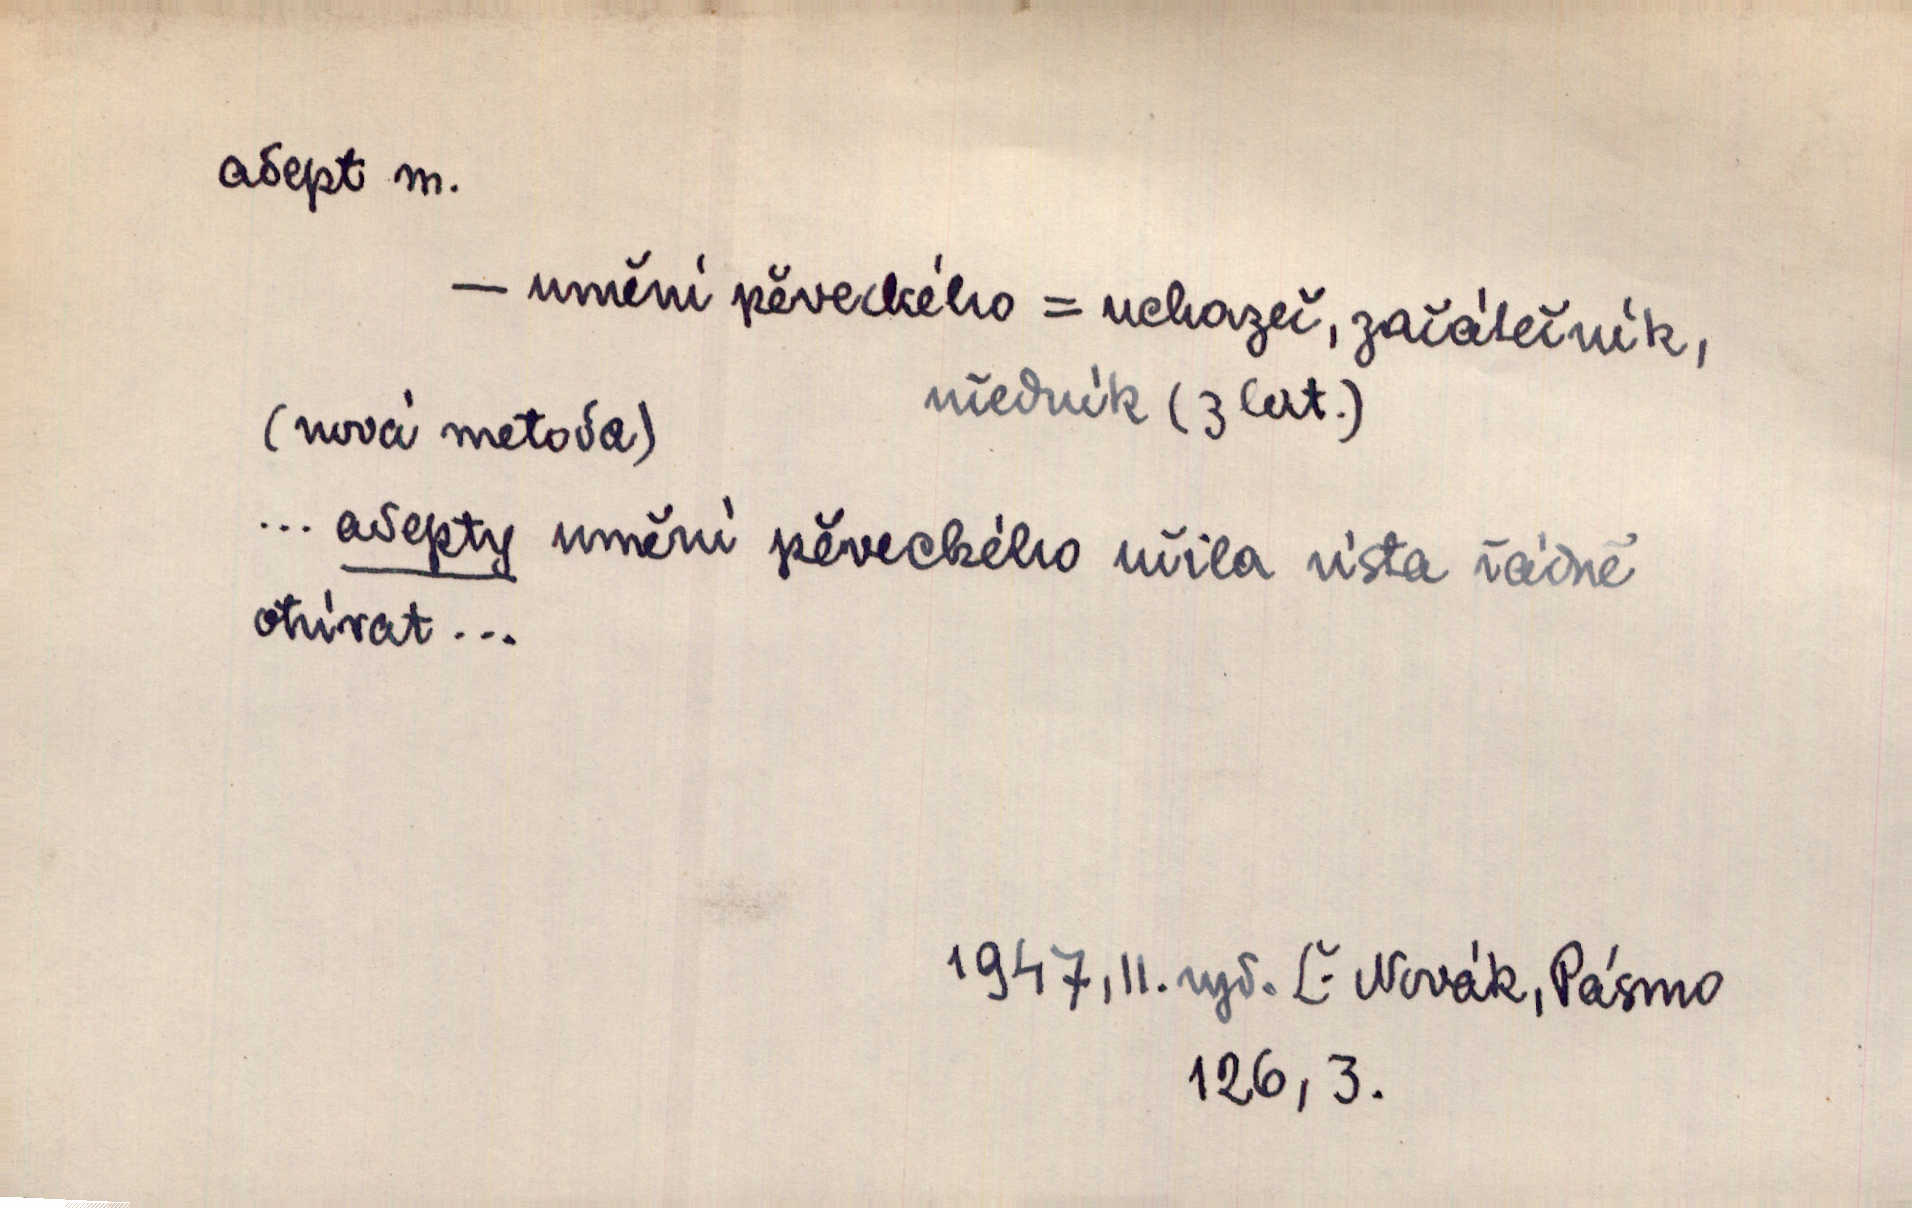 adept m.
— umění pěveckého = uchazeč, začátečník,
učedník (z lat.)
(nová metoda)
... adepty umění pěveckého učila ústa řádně
otvírat ...
1947, II. vyd. Č Novák, Pásmo
126, 3.